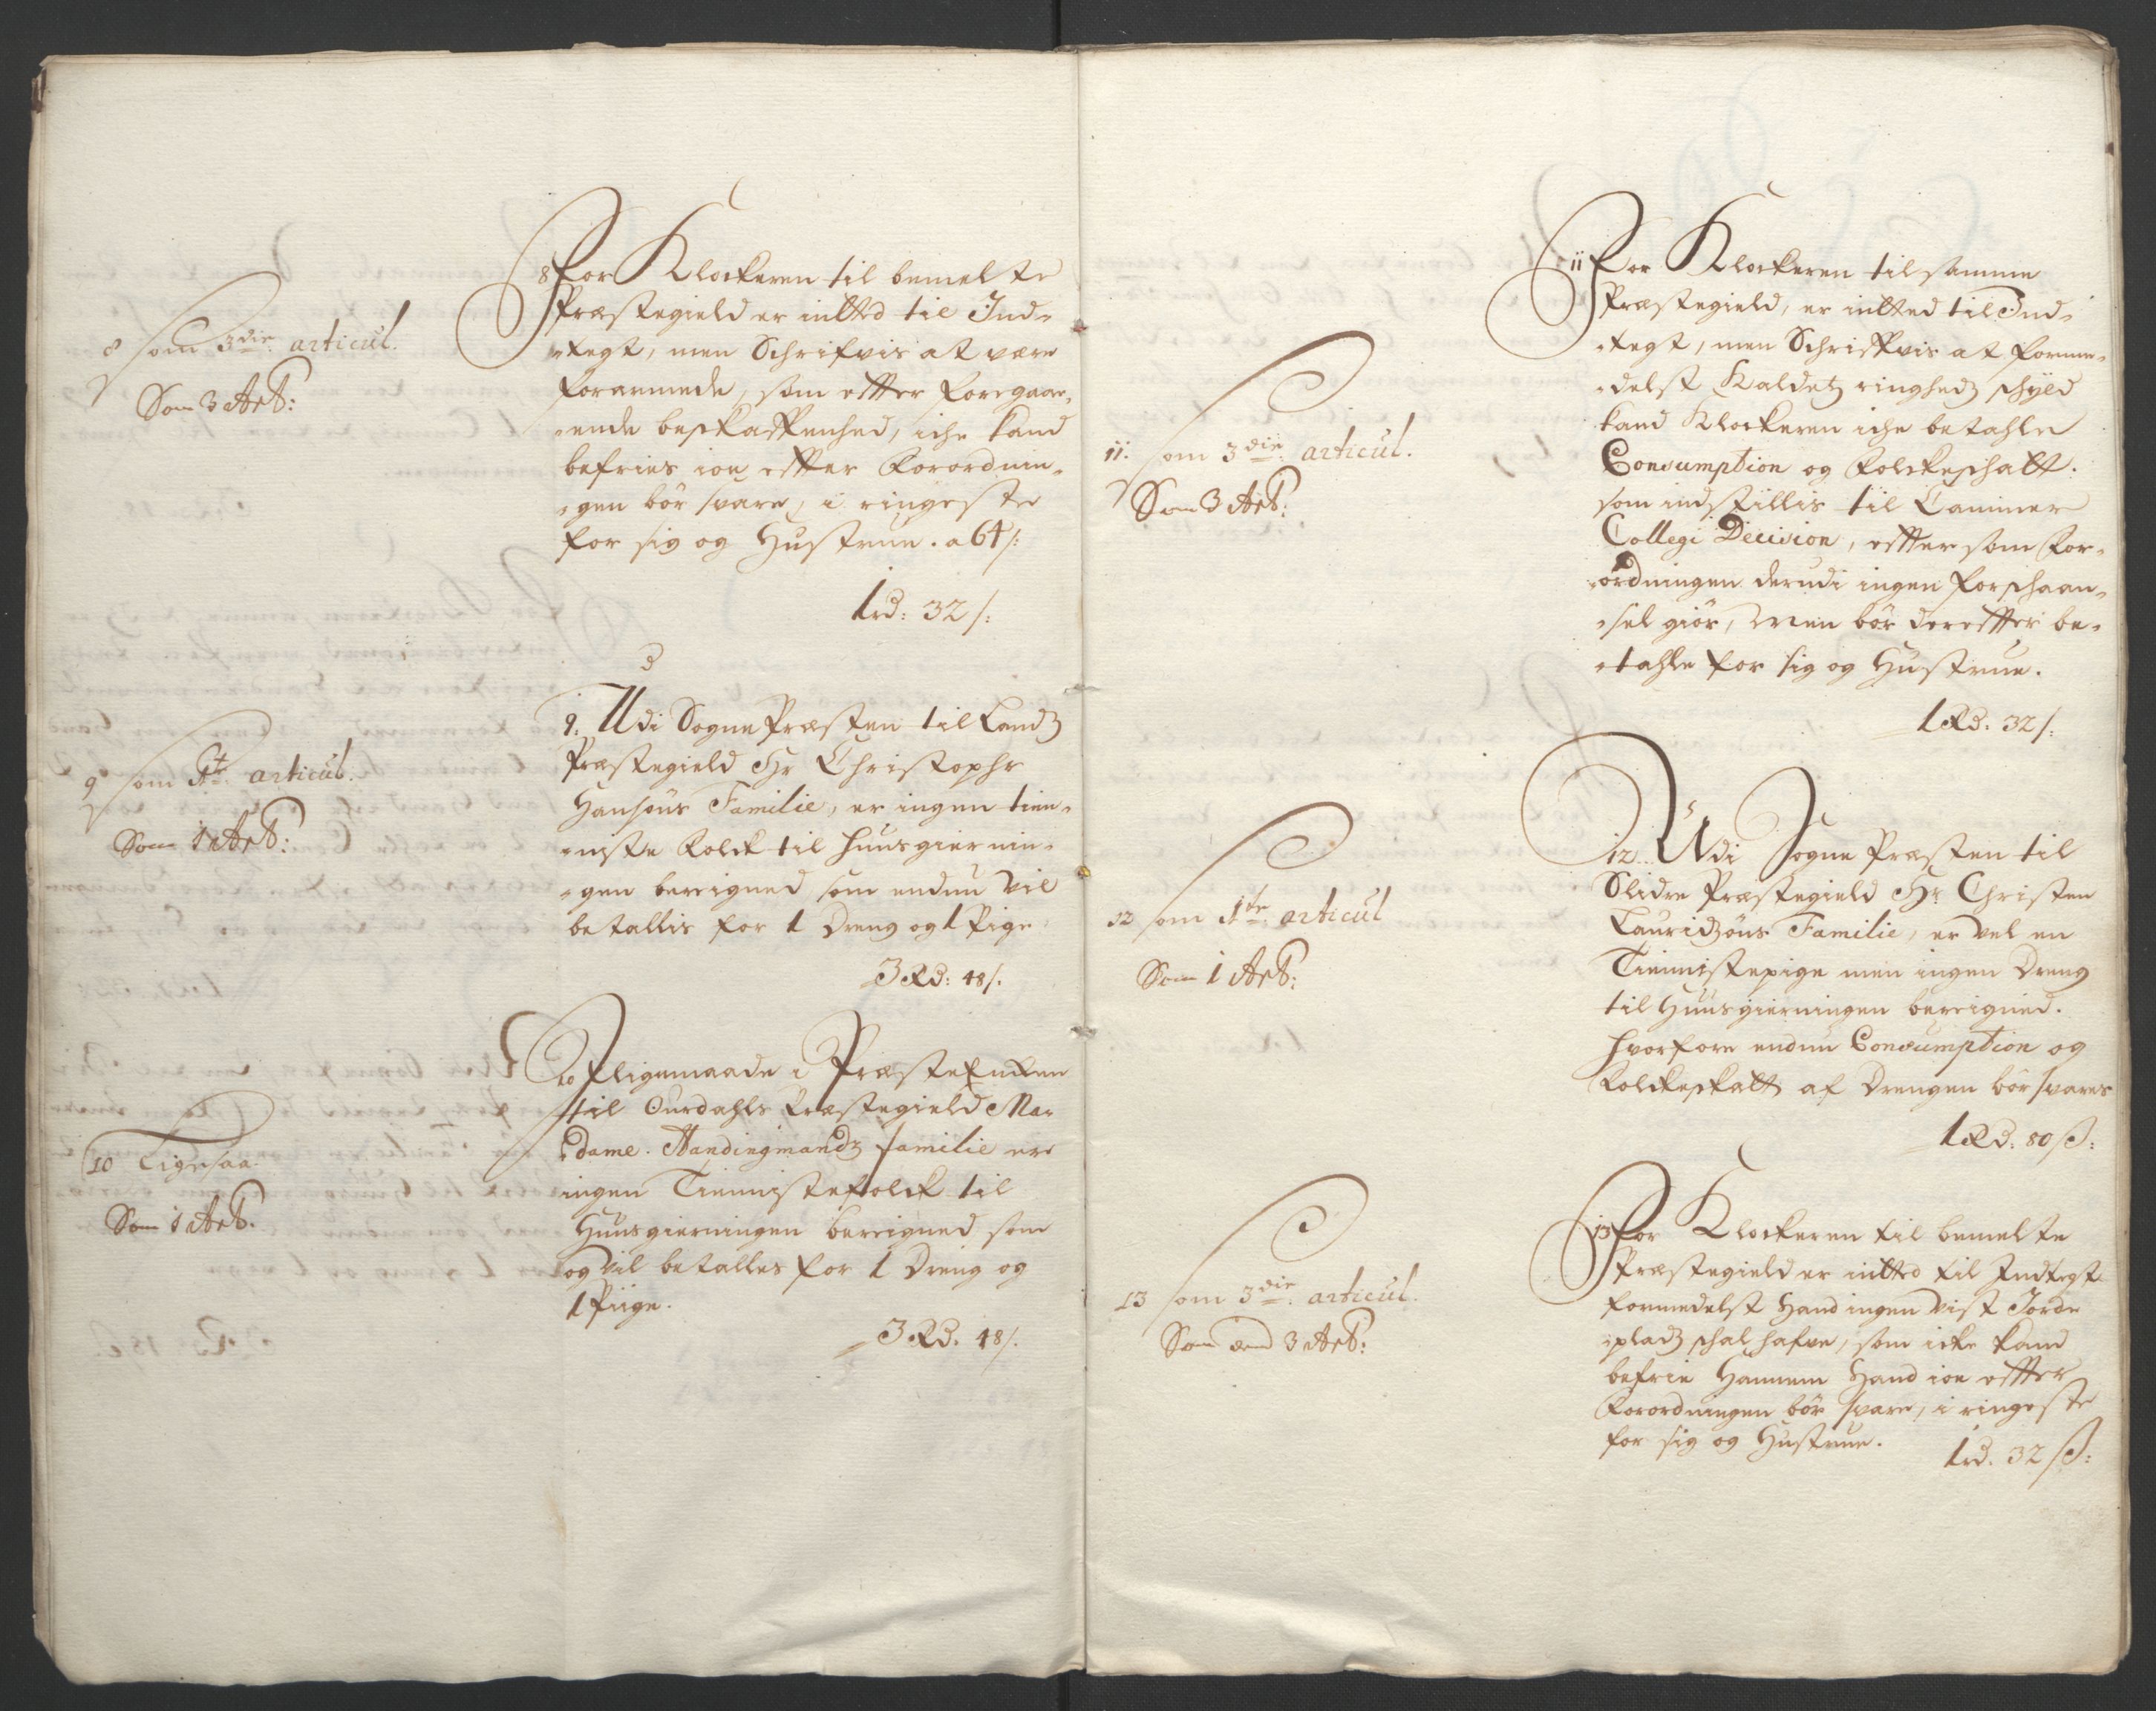 8 som 3die articul.
Som 3 Art:
8 For Klockeren til bemelte
Præstegield er intted til Ind-
-tegt, men Schrifvis at være
forarmede, som effter foregaa-
-ende beskaffenhed, iche kand
befries ion effter Forordnin-
-gen bör svare, i ringeste
for sig og Hustrue. a 64 s:
1 rd: 32 s:
9 som 1te articul.
Som 1 Art:
9. Udi Sogne Præsten til Landz
Præstegield Hr Christopher
Hansöns Familie, er ingen tien-
-niste Folck til huusgiernin-
-gen beregned som endnu vil
betallis for 1 Dreng og 1 Pige
3 Rd: 48 s.
10 Ligesaa
Som 1 Art.
10 Iligemaade i Præste Encken
til Ourdahls Præstegield Ma-
-dame Handingmandz familie ere
ingen Tiennistefolck til
Huusgierningen beregned som
og vil betalles for 1 Dreng og
1 Piige.
3 Rd. 48 s.
11. som 3die articul.
Som 3 Art:
11 For Klockeren til samme
Præstegield, er intted til Ind-
-tegt, men Schriffvis at forme-
-delst Kaldetz ringhedz schyld
kand Klockeren iche betahle
Consumption og Folckeschatt.
som indstillis til Cammer
Collegi Decision, effter som For-
-ordningen derudi ingen forschaan-
-sel giör, men bör dereffter be-
-tahle for sig og Hustrue.
1 Rd: 32 s:
12 som 1te articul
Som 1 Art:
12. Udi Sogne Præsten til
Slidre Præstegield Hr Christen
Lauridzöns Familie, er vel en
Tiennistepige men ingen Dreng
til Huusgierningen beregned.
hvorfore endnu Consumption og
Folckeskatt af Drengen bör svares
1 Rd: 80 s:
13 som 3die articul.
Som 3 Art:
13 For Klockeren til bemelte
Præstegield er intted til Indtegt
formedelst Hand ingen vist Jorde
-pladz schal hafve, som icke kand
befrie Hannem Hand ion effter
Forordningen bör svare, i ringeste
for sig og Hustrue.
1 rd. 32 s: